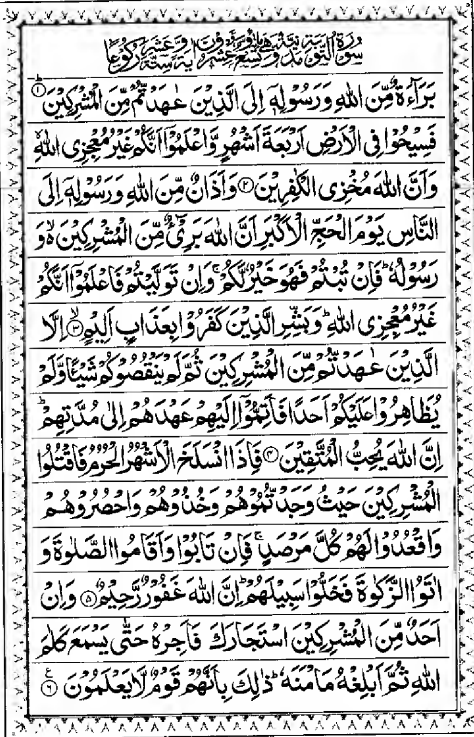 سورة التوبة مدنية وهي مائة وتسع وعشرون اية وستة عشر ركوعا
بَرَآءَةٌ مِّنَ اللهِ وَرَسُوْلِهٖٓ اِلَى الَّذِيْنَ عٰهَدْتُّمْ مِّنَ الْمُشْرِكِيْنَ ﴿۱﴾ؕ
فَسِيْحُوْا فِى الْاَرْضِ اَرْبَعَةَ اَشْهُرٍ وَّاعْلَمُوْٓا اَنَّكُمْ غَيْرُ مُعْجِزِى اللهِ
وَاَنَّ اللهَ مُخْزِى الْكٰفِرِيْنَ ﴿۲﴾ وَاَذَانٌ مِّنَ اللهِ وَرَسُوْلِهٖٓ اِلَى
النَّاسِ يَوْمَ الْحَجِّ الْاَكْبَرِ اَنَّ اللهَ بَرِىْٓءٌ مِّنَ الْمُشْرِكِيْنَ ۙ۬ وَ
رَسُوْلُهٗ ؕ فَاِنْ تُبْتُمْ فَهُوَ خَيْرٌ لَّكُمْ ۚ وَاِنْ تَوَلَّيْتُمْ فَاعْلَمُوْٓا اَنَّكُمْ
غَيْرُ مُعْجِزِى اللهِ ؕ وَبَشِّرِ الَّذِيْنَ كَفَرُوْا بِعَذَابٍ اَلِيْمٍ ﴿۳﴾ۙ اِلَّا
الَّذِيْنَ عٰهَدْتُّمْ مِّنَ الْمُشْرِكِيْنَ ثُمَّ لَمْ يَنْقُصُوْكُمْ شَيْئًا وَّلَمْ
يُظَاهِرُوْا عَلَيْكُمْ اَحَدًا فَاَتِمُّوْٓا اِلَيْهِمْ عَهْدَهُمْ اِلٰى مُدَّتِهِمْ ؕ
اِنَّ اللهَ يُحِبُّ الْمُتَّقِيْنَ ﴿۴﴾ فَاِذَا انْسَلَخَ الْاَشْهُرُ الْحُرُمُ فَاقْتُلُوا
الْمُشْرِكِيْنَ حَيْثُ وَجَدْتُّمُوْهُمْ وَخُذُوْهُمْ وَاحْصُرُوْهُمْ
وَاقْعُدُوْا لَهُمْ كُلَّ مَرْصَدٍ ۚ فَاِنْ تَابُوْا وَاَقَامُوا الصَّلٰوةَ وَ
اٰتَوُا الزَّكٰوةَ فَخَلُّوْا سَبِيْلَهُمْ ؕ اِنَّ اللهَ غَفُوْرٌ رَّحِيْمٌ ﴿۵﴾ وَاِنْ
اَحَدٌ مِّنَ الْمُشْرِكِيْنَ اسْتَجَارَكَ فَاَجِرْهُ حَتّٰى يَسْمَعَ كَلٰمَ
اللهِ ثُمَّ اَبْلِغْهُ مَاْمَنَهٗ ؕ ذٰلِكَ بِاَنَّهُمْ قَوْمٌ لَّا يَعْلَمُوْنَ ﴿۶﴾ ع